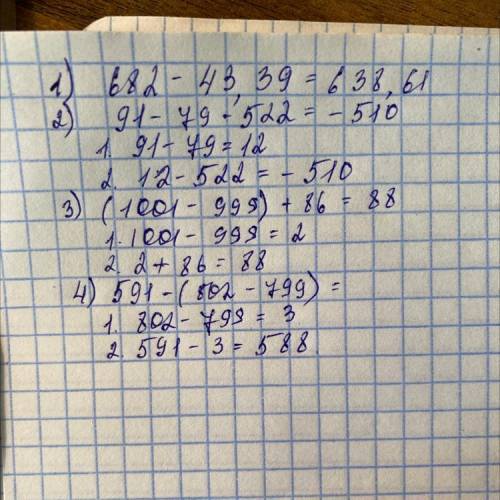 1) 682 - 43,39 = 638,61
2) 91 - 79 - 522 = - 510
1. 91 - 79 = 12
2. 12 - 522 = - 510
3) (1001 - 999) + 86 = 88
1. 1001 - 999 = 2
2. 2 + 86 = 88
4) 591 - (802 - 799) =
1. 802 - 799 = 3
2. 591 - 3 = 588